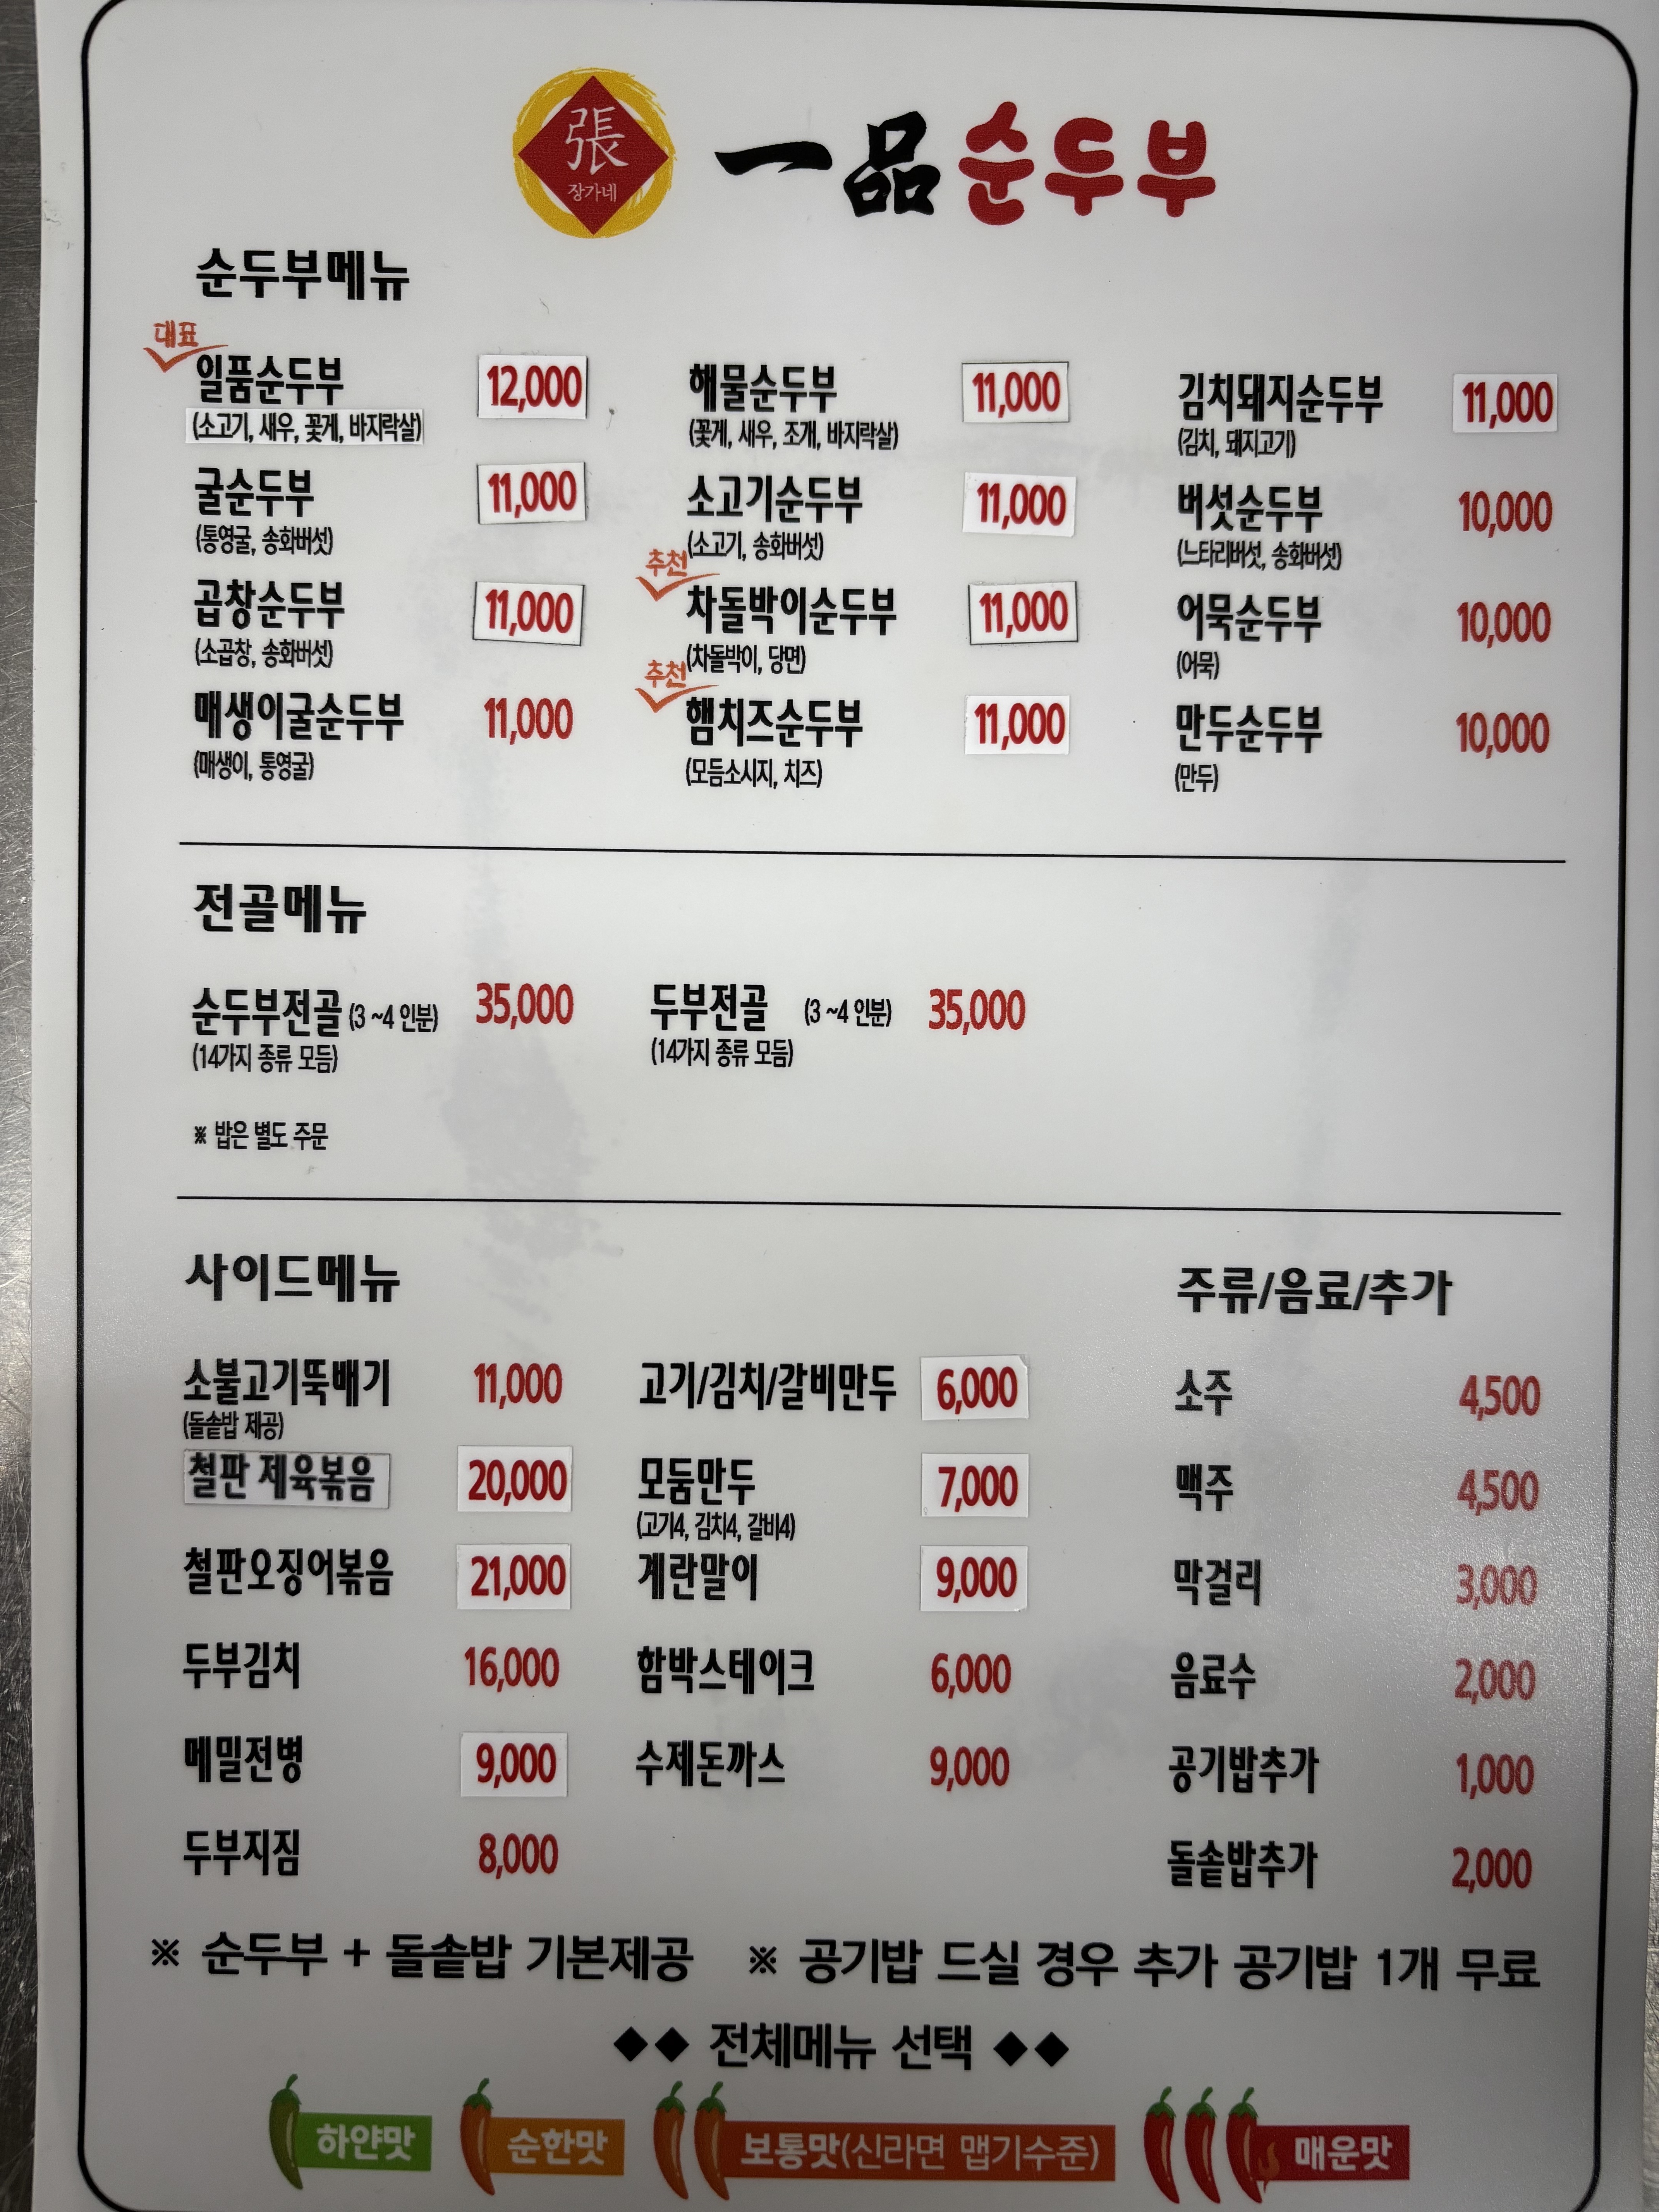 張
장가네
一品순두부
순두부메뉴
대표
일품순두부 12,000
(소고기, 새우, 꽃게, 바지락살)
굴순두부 11,000
(통영굴, 송화버섯)
곱창순두부 11,000
(소곱창, 송화버섯)
매생이굴순두부 11,000
(매생이, 통영굴)
해물순두부 11,000
(꽃게, 새우, 조개, 바지락살)
소고기순두부 11,000
(소고기, 송화버섯)
추천
차돌박이순두부 11,000
(차돌박이, 당면)
추천
햄치즈순두부 11,000
(모듬소시지, 치즈)
김치돼지순두부 11,000
(김치, 돼지고기)
버섯순두부 10,000
(느타리버섯, 송화버섯)
어묵순두부 10,000
(어묵)
만두순두부 10,000
(만두)
전골메뉴
순두부전골 (3 ~4 인분) 35,000
(14가지 종류 모듬)
두부전골 (3 ~4 인분) 35,000
(14가지 종류 모듬)
※ 밥은 별도 주문
사이드메뉴
소불고기뚝배기 11,000
(돌솥밥 제공)
철판 제육볶음 20,000
철판오징어볶음 21,000
두부김치 16,000
메밀전병 9,000
두부지짐 8,000
고기/김치/갈비만두 6,000
모둠만두 7,000
(고기4, 김치4, 갈비4)
계란말이 9,000
함박스테이크 6,000
수제돈까스 9,000
주류/음료/추가
소주 4,500
맥주 4,500
막걸리 3,000
음료수 2,000
공기밥추가 1,000
돌솥밥추가 2,000
※ 순두부 + 돌솥밥 기본제공 ※ 공기밥 드실 경우 추가 공기밥 1개 무료
◆◆ 전체메뉴 선택 ◆◆
하얀맛 순한맛 보통맛(신라면 맵기수준) 매운맛